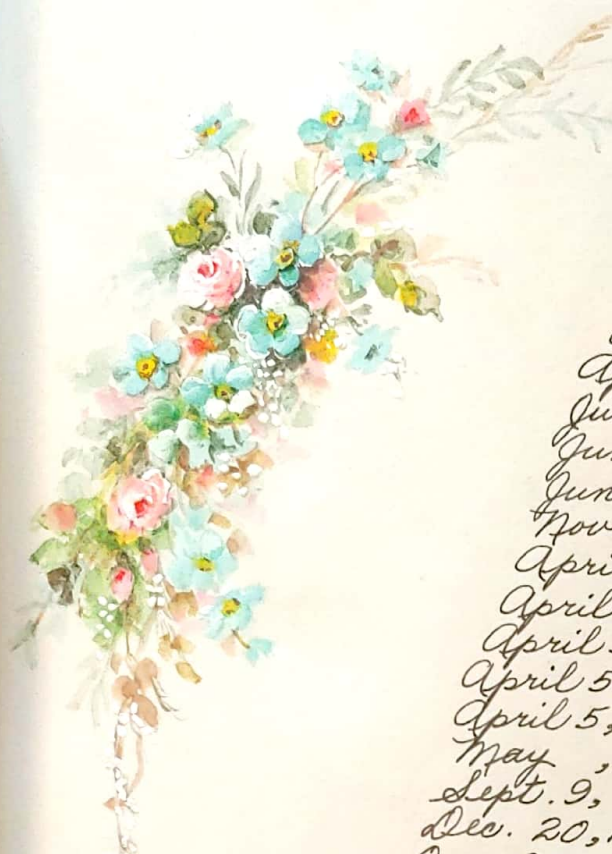 A
Ju
Ju
Jun
Nov
Apri
April
April
April 5
April 5,
May ,
Sept. 9,
Dec. 20,